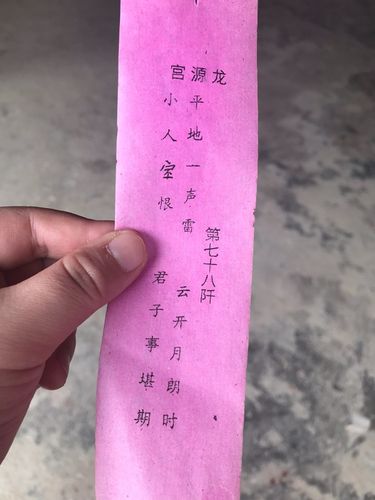 龙源宫
第七十八阡
平地一声雷
云开月朗时
小人室恨
君子事堪期